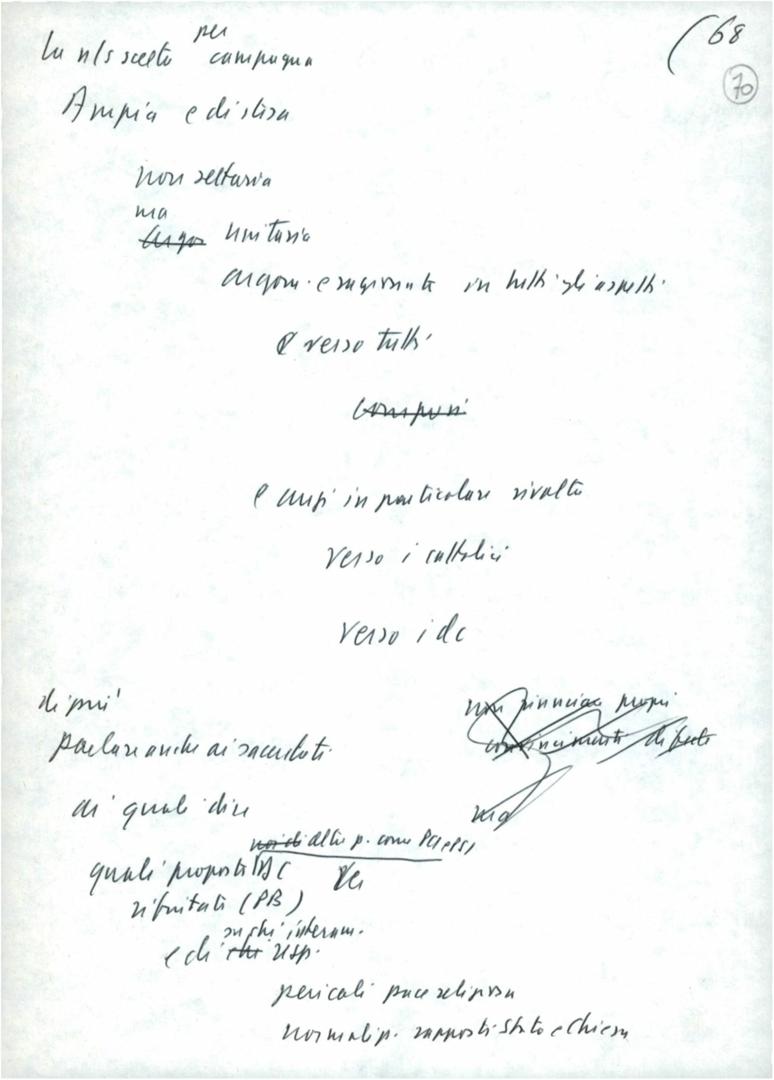 (68
70
per
La n/s scelta campagna
Ampia e distesa
non settaria
ma
unitaria
argom. e ragionata in tutti gli aspetti
e verso tutti
e anzi in particolare rivolta
verso i cattolici
verso i dc
di più
non rinunciare propri
convincimenti di fede
parlare anche ai sacerdoti
ma
ai quali dire
noi di altri p. come PCI e PSI
quali proposte DC
rifiutate (PB)
anche interam.
e di chi resp.
pericoli pace religiosa
normaliz. rapporti Stato e Chiesa